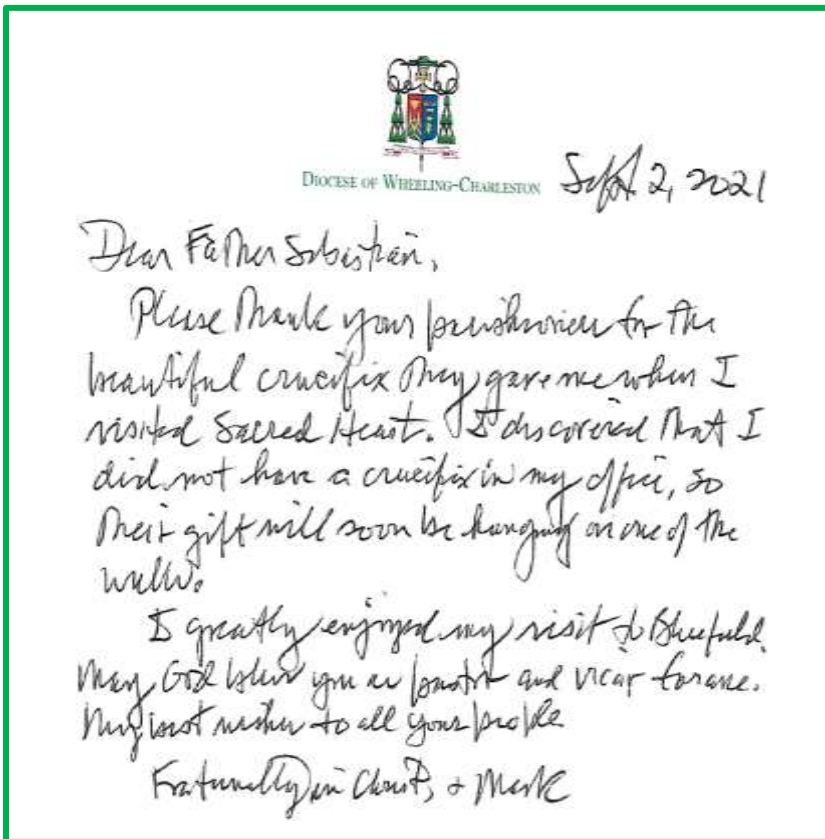 DIOCESE OF WHEELING-CHARLESTON
Sept. 2, 2021
Dear Father Sebastian,
Please thank your parishioners for the
beautiful crucifix they gave me when I
visited Sacred Heart. I discovered that I
did not have a crucifix in my office, so
their gift will soon be hanging on one of the
walls.
I greatly enjoyed my visit to Bluefield.
May God bless you as pastor and vicar forane.
My best wishes to all your people
Fraternally in Christ, + Mark